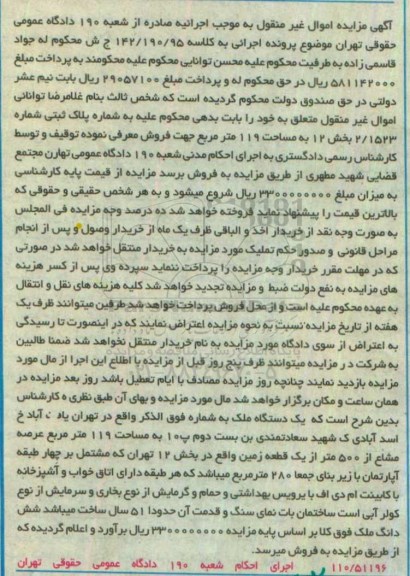 آگهی مزایده اموال غیر منقول به موجب اجرائیه صادره از شعبه ۱۹۰ دادگاه عمومی
حقوقی تهران موضوع پرونده اجرائی به کلاسه ۱۴۲/۱۹۰/۹۵ ج ش محکوم له جواد
قاسمی زاده به طرفیت محکوم علیه محسن توانایی محکوم علیه محکومند به پرداخت مبلغ
۵۸۱۱۴۲۰۰۰ ریال در حق محکوم له و پرداخت مبلغ ۲۹۰۵۷۱۰۰ ریال بابت نیم عشر
دولتی در حق صندوق دولت محکوم گردیده است که شخص ثالث بنام غلامرضا توانائی
اموال غیر منقول متعلق به خود را بابت بدهی محکوم علیه به شماره پلاک ثبتی شماره
۲/۱۵۲۳ بخش ۱۲ به مساحت ۱۱۹ متر مربع جهت فروش معرفی نموده توقیف و توسط
کارشناس رسمی دادگستری به اجرای احکام مدنی شعبه ۱۹۰ دادگاه عمومی تهران مجتمع
قضایی شهید مطهری از طریق مزایده به فروش برسد مزایده از قیمت پایه کارشناسی
به میزان مبلغ ۳۳۰۰۰۰۰۰۰۰۰ ریال شروع میشود و به هر شخص حقیقی و حقوقی که
بالاترین قیمت را پیشنهاد نماید فروخته خواهد شد ده درصد وجه مزایده فی المجلس
به صورت وجه نقد از خریدار اخذ و الباقی ظرف یک ماه از خریدار وصول و پس از انجام
مراحل قانونی و صدور حکم تملیک مورد مزایده به خریدار منتقل خواهد شد در صورتی
که در مهلت مقرر خریدار وجه مزایده را پرداخت ننماید سپرده وی پس از کسر هزینه
های مزایده به نفع دولت ضبط و مزایده تجدید خواهد شد کلیه هزینه های نقل و انتقال
به عهده محکوم علیه است و از محل فروش پرداخت خواهد شد طرفین میتوانند ظرف یک
هفته از تاریخ مزایده نسبت به نحوه مزایده اعتراض نمایند که در اینصورت تا رسیدگی
به اعتراض از سوی دادگاه مورد مزایده به نام خریدار منتقل نخواهد شد ضمنا طالبین
به شرکت در مزایده میتوانند ظرف پنج روز قبل از مزایده با اطلاع این اجرا از مال مورد
مزایده بازدید نمایند چنانچه روز مزایده مصادف با ایام تعطیل باشد روز بعد مزایده در
همان ساعت و مکان برگزار خواهد شد مال مورد مزایده و بهای آن طبق نظریه کارشناس
بدین شرح است که یک دستگاه ملک به شماره فوق الذکر واقع در تهران آباد خ
اسد آبادی ک شهید سعادتمندی بن بست دوم پ۱۰ به مساحت ۱۱۹ متر مربع عرصه
مشاع از ۵۰۰ متر از یک قطعه زمین واقع در بخش ۱۲ تهران که مشتمل بر چهار طبقه
آپارتمان با زیر بنای جمعا ۲۸۰ مترمربع میباشد که هر طبقه دارای اتاق خواب و آشپزخانه
با کابینت ام دی اف با سرویس بهداشتی و حمام و گرمایش از نوع بخاری و سرمایش از نوع
کولر آبی است ساختمان بات نمای سنگ و قدمت آن حدودا ۵۱ سال ساخت میباشد شش
دانگ ملک فوق کلا بر اساس پایه مزایده ۳۳۰۰۰۰۰۰۰۰۰ ریال برآورد و اعلام گردیده که
از طریق مزایده به فروش میرسد.
۱۱۰/۵۱۱۹۶ اجرای احکام شعبه ۱۹۰ دادگاه عمومی حقوقی تهران